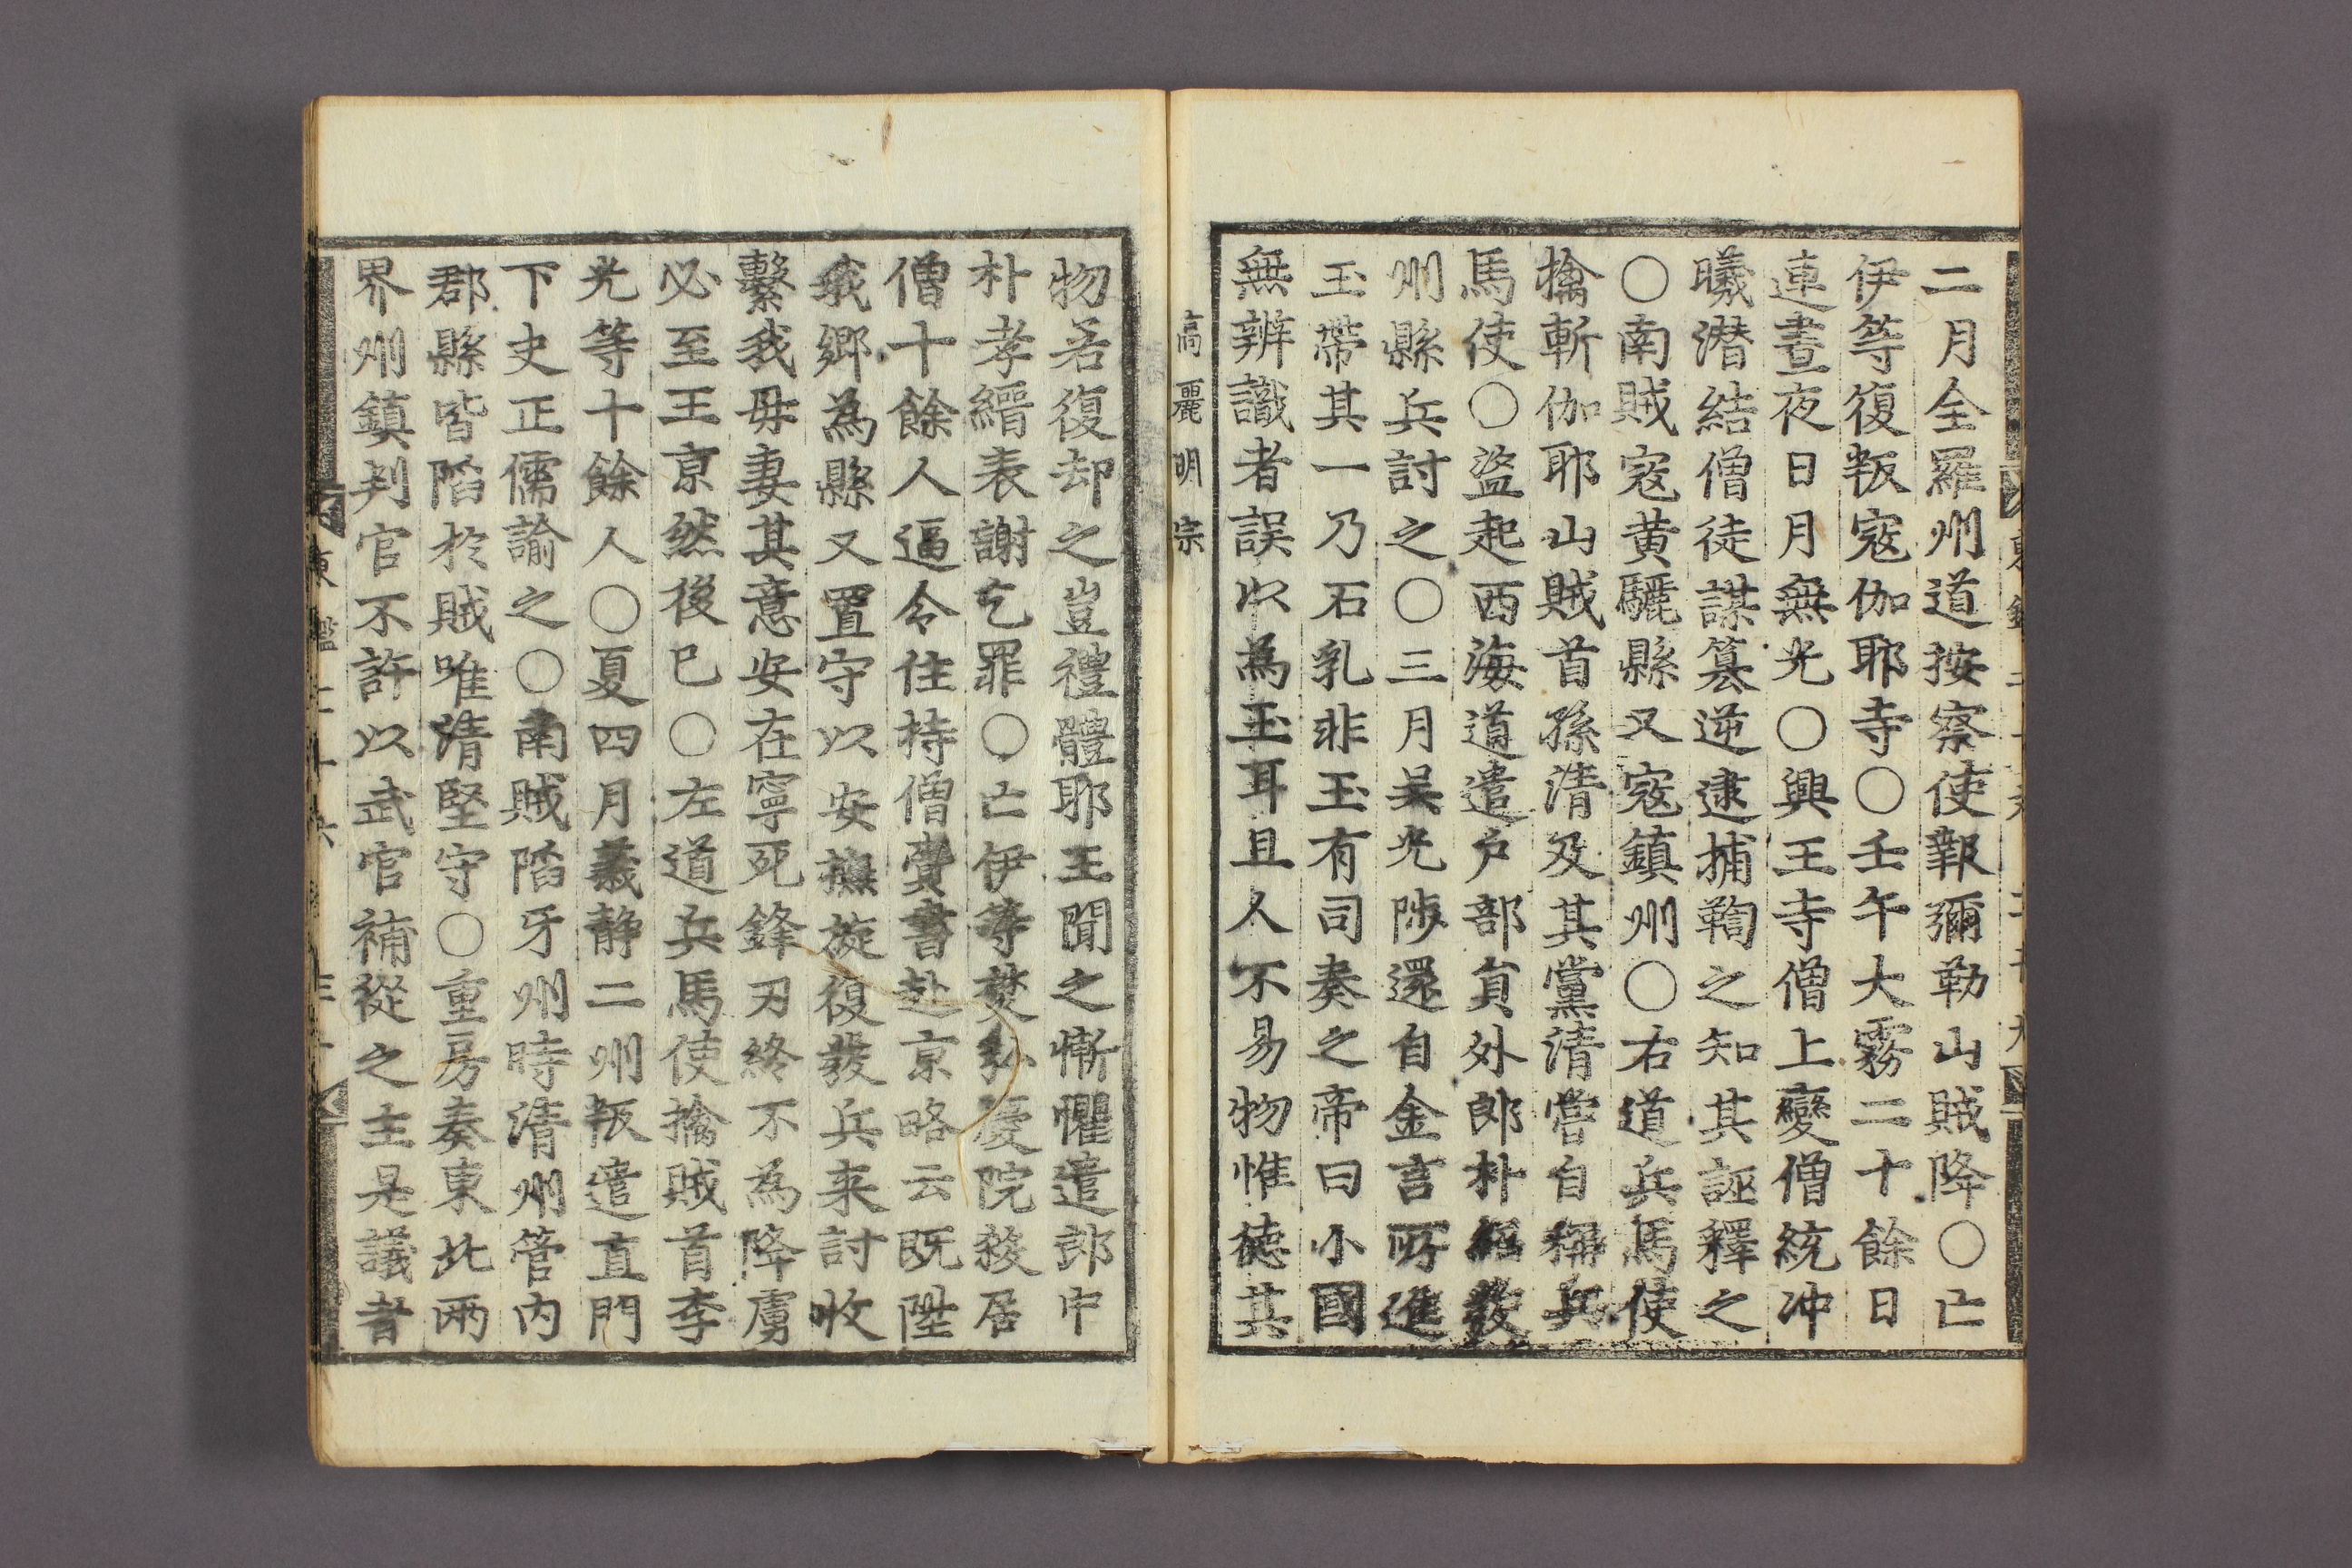 二月全羅州道按察使報彌勒山賊降〇亡
伊等復叛寇伽耶寺〇壬午大霧二十餘日
連晝夜日月無光〇興王寺僧上變僧統冲
曦潜結僧徒謀篡逆逮捕鞫之知其誣釋之
〇南賊寇黄驪縣又寇鎮州〇右道兵馬使
擒斬伽耶山賊首孫清及其黨清嘗自稱兵
馬使〇盜起西海道遣戶部員外郎朴紹發
州縣兵討之〇三月吴光陟還自金言所進
玉帶其一乃石乳非玉有司奏之帝曰小國
無辨識者誤以為玉耳且人不易物惟德其
高麗明宗
物若復却之豈禮體耶王聞之慚懼遣郎中
朴孝縉表謝乞罪〇亡伊等焚弘慶院殺居
僧十餘人逼令住持僧賫書赴京略云既陞
我鄉為縣又置守以安撫旋復發兵来討收
繫我母妻其意安在寧死鋒刃終不為降虜
必至王京然後已〇左道兵馬使擒賊首李
光等十餘人〇夏四月義静二州叛遣直門
下史正儒諭之〇南賊陷牙州時清州管内
郡縣皆陷於賊唯清堅守〇重房奏東北兩
界州鎮判官不許以武官補從之主是議者